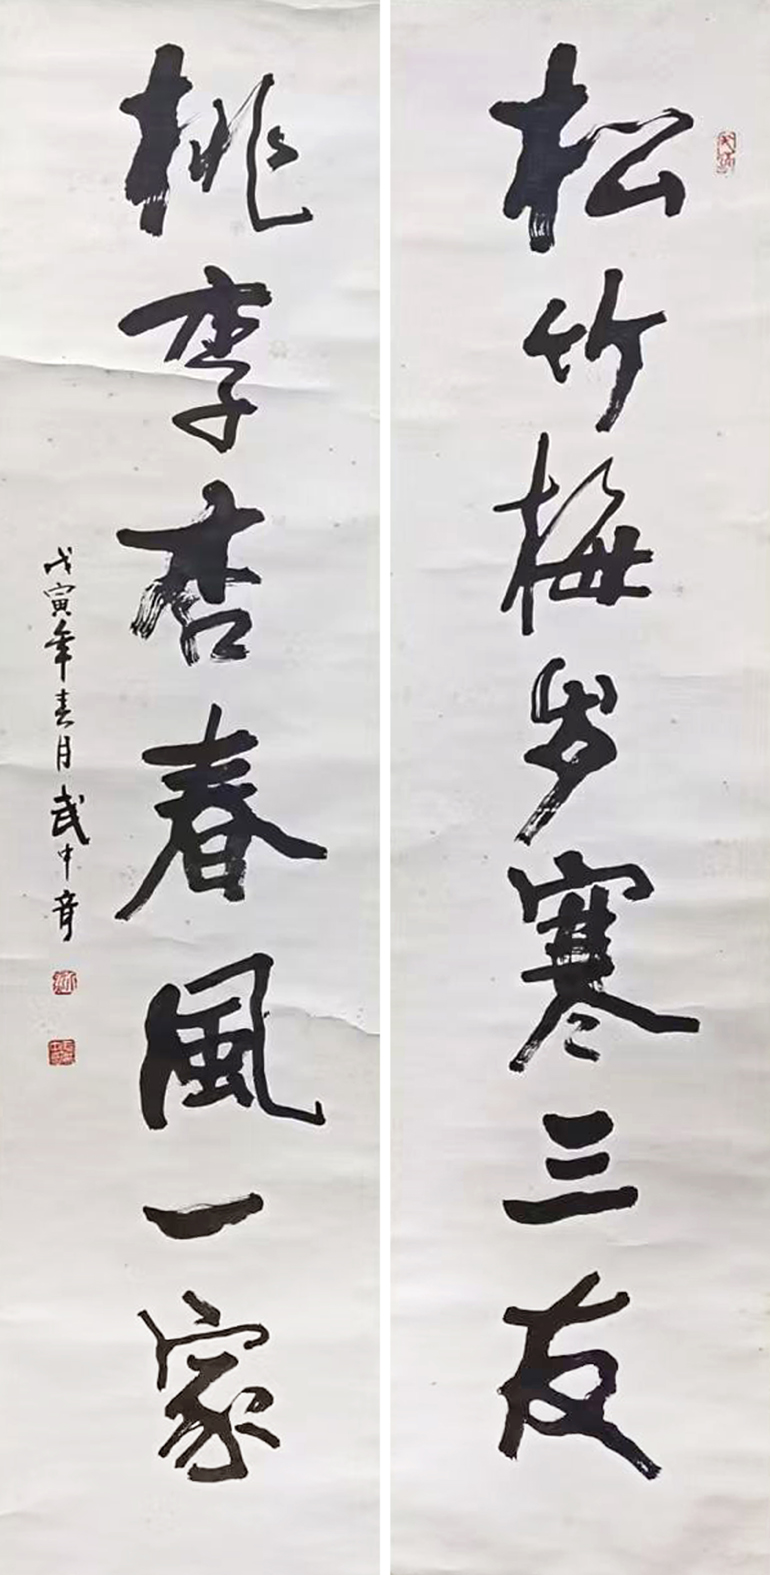 松竹梅岁寒三友
桃李杏春風一家
戊寅年春月武中奇